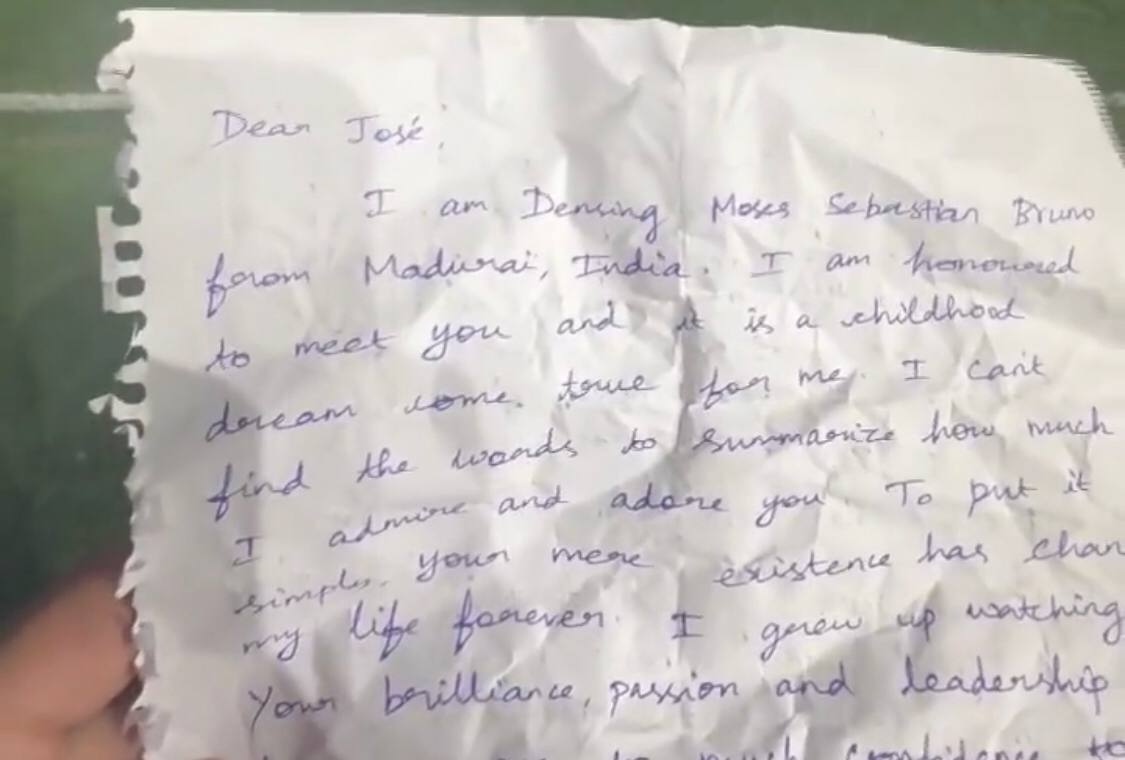 Dear José,
I am Densing Moses Sebastian Bruno
from Madurai, India. I am honoured
to meet you and it is a childhood
dream come true for me. I can't
find the words to summarize how much
I admire and adore you. To put it
simple, your mere existence has chan
my life forever. I grew up watching
Your brilliance, passion and leadership
much confidence to